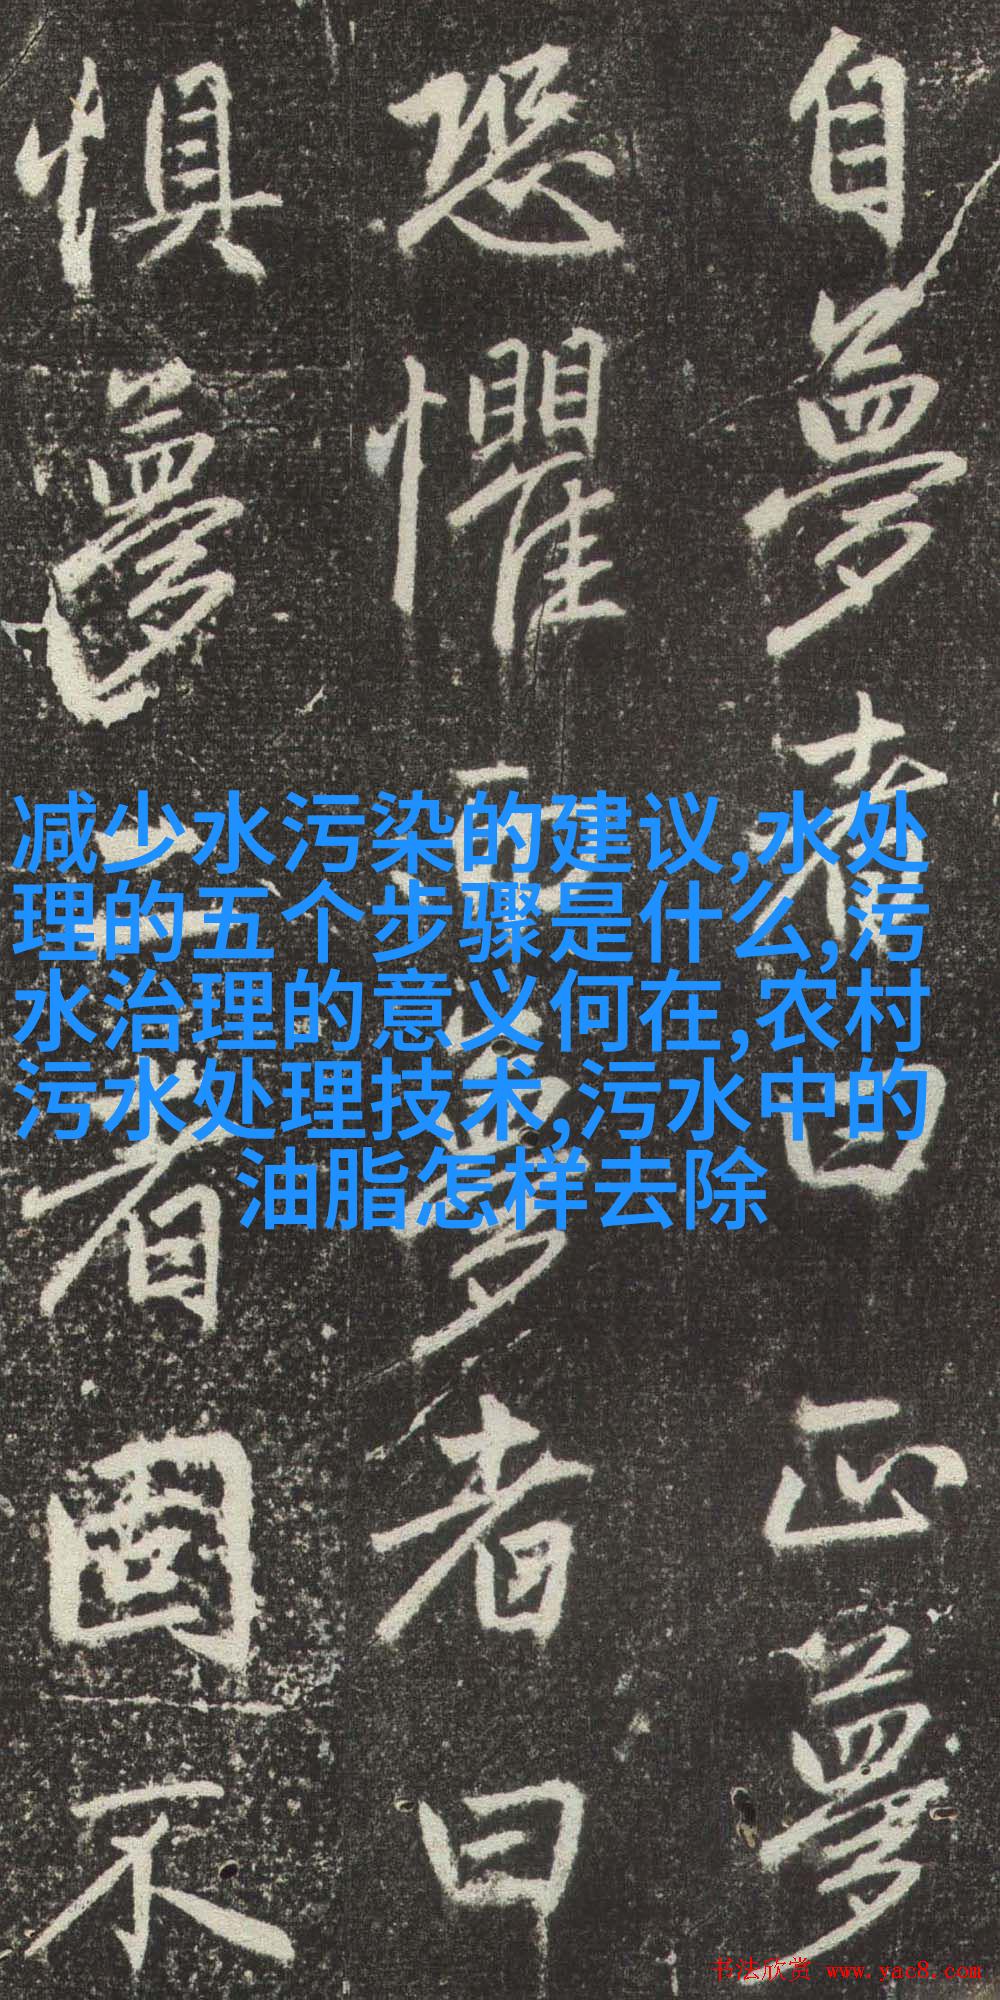 自夢者曰正夢
恐懼
夢者曰
惧夢二者固不
减少水污染的建议,水处
理的五个步骤是什么,污
水治理的意义何在,农村
污水处理技术,污水中的
油脂怎样去除
书法欣赏 www.yac8.com